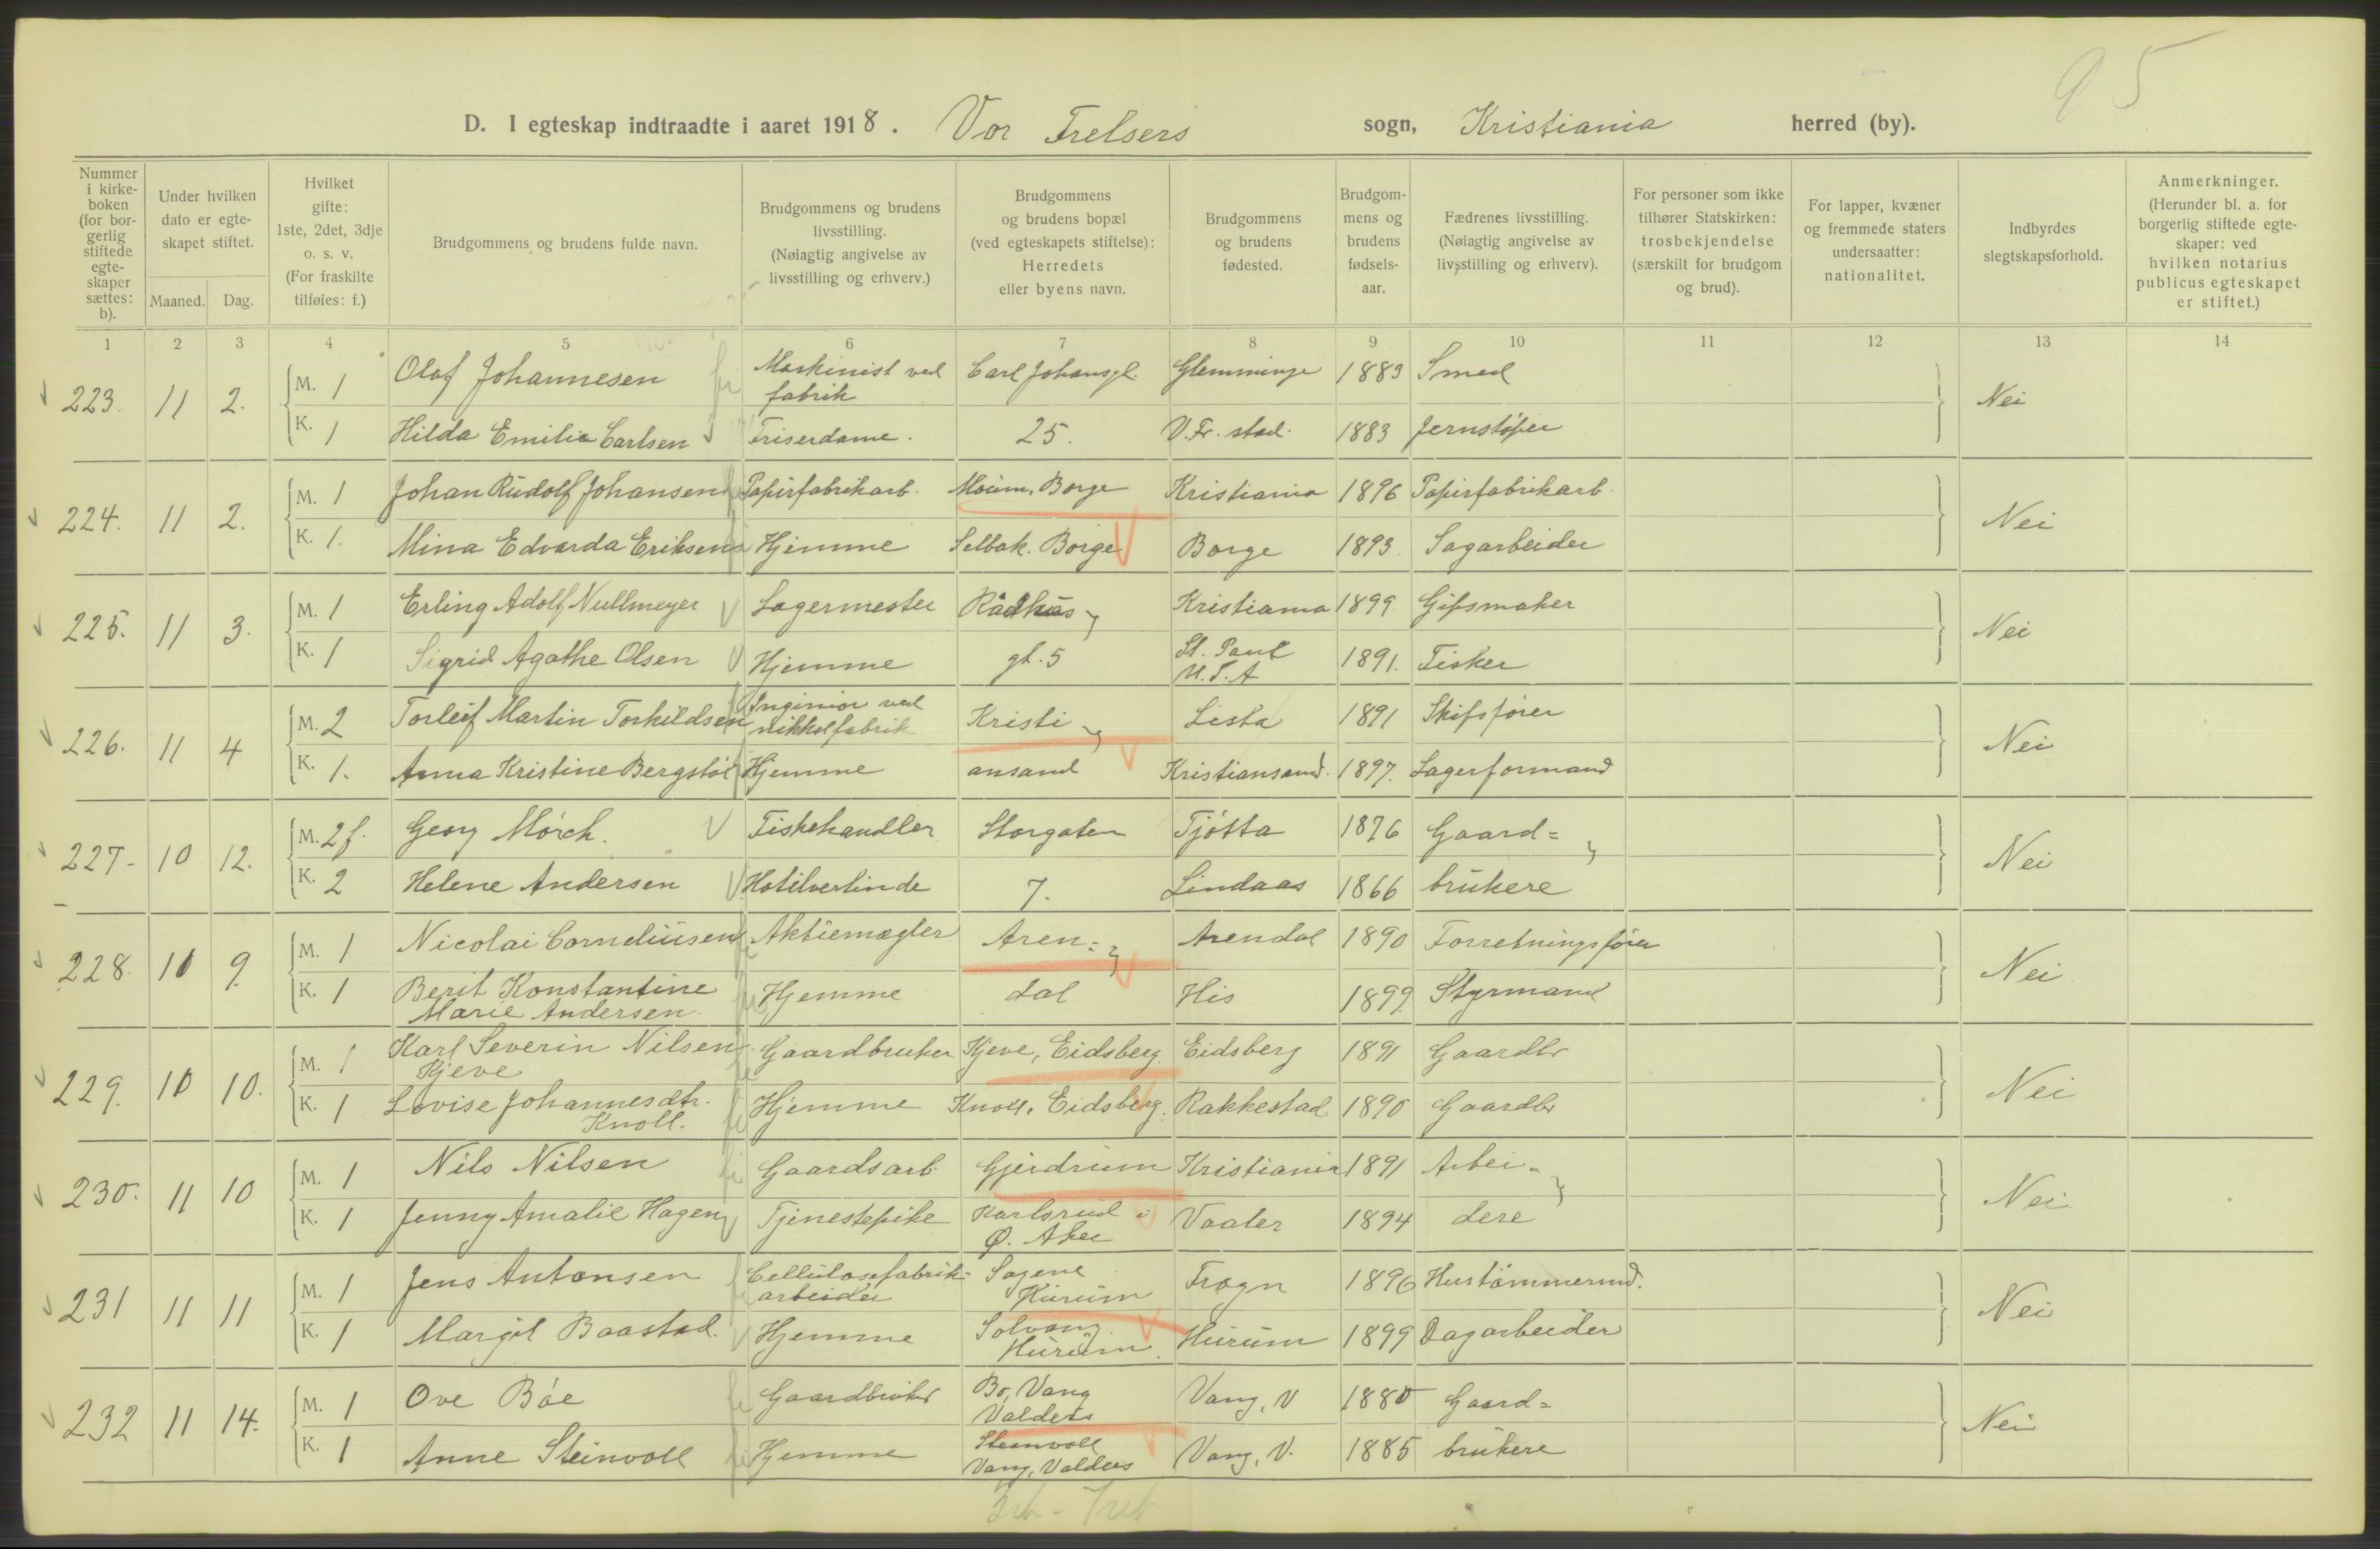 95
D. I egteskap indtraadte i aaret 1918. Vor Frelsers sogn, Kristiania herred (by).
Nummer i kirke-boken (for bor-gerlig stiftede egte-skaper sættes: b).
Under hvilken dato er egte-skapet stiftet.
Maaned. Dag.
Hvilket gifte: 1ste, 2det, 3dje o. s. v. (For fraskilte tilføies: f.)
Brudgommens og brudens fulde navn.
Brudgommens og brudens livsstilling. (Nøiagtig angivelse av livsstilling og erhverv.)
Brudgommens og brudens bopæl (ved egteskapets stiftelse): Herredets eller byens navn.
Brudgommens og brudens fødested.
Brudgom-mens og brudens fødsels-aar.
Fædrenes livsstilling. (Nøiagtig angivelse av livsstilling og erhverv).
For personer som ikke tilhører Statskirken: trosbekjendelse (særskilt for brudgom og brud).
For lapper, kvæner og fremmede staters undersaatter: nationalitet.
Indbyrdes slegtskapsforhold.
Anmerkninger. (Herunder bl. a. for borgerlig stiftede egte-skaper: ved hvilken notarius publicus egteskapet er stiftet.)
1 2 3 4 5 6 7 8 9 10 11 12 13 14
223. 11 2. M. 1 Olaf Johannesen Maskinist ved fabrik Carl Johansgt. Glemminge 1883 Smed Nei
K. 1 Hilda Emilie Carlsen Friserdame. 25. V. Fr. stad. 1883 Jernstøper
224. 11 2. M. 1 Johan Rudolf Johansen Papirfabrikarb. Moum, Borge Kristiania 1896 Papirfabrikarb. Nei
K. 1. Mina Edvarda Eriksen Hjemme Selbak. Borge Borge 1893 Sagarbeider
225. 11 3. M. 1 Erling Adolf Nullmeyer Lagermester Rådhus Kristiania 1899. Gipsmaker Nei
K. 1 Sigrid Agathe Olsen Hjemme gt. 5 St. Paul U.S.A 1891. Fisker
226. 11 4 M. 2 Torleif Martin Torkildsen Ingeniør ved nikkelfabrik Kristi Lista 1891 Skifsfører Nei
K. 1. Anna Kristine Bergstøl Hjemme ansand Kristiansand. 1897. Lagerformand
227- 10 12. M. 2 f. Georg Mørch. Fiskehandler Storgaten Tjøtta 1876 Gaard= Nei
K. 2 Helene Andersen Hotelvertinde 7. Lindaas 1866 brukere
228. 10 9. M. 1 Nicolai Corneliusen Aktiemægler Aren= Arendal 1890 Forretningsfører Nei
K. 1 Berit Konstantine Marie Andersen. Hjemme dal His 1899. Styrmand
229. 10 10. M. 1 Karl Severin Nilsen Kjeve Gaardbruker Kjeve, Eidsberg Eidsberg 1891 Gaardbr Nei
K. 1 Lovise Johannesdtr. Knoll. Hjemme Knoll, Eidsberg. Rakkestad. 1890 Gaardbr
230. 11 10 M. 1 Nils Nilsen Gaardsarb. Gjerdrum Kristiania 1891 Arbei- Nei
K. 1 Jenny Amalie Hagen Tjenestepike Karlsrud i Ø. Aker Vaaler 1894 dere
231 11 11 M. 1 Jens Antonsen Cellulosefabrik= arbeider Sagene Hurum Frogn 1896 Hustømmermd. Nei
K. 1 Margit Baastad. Hjemme Solvang. Hurum. Hurum 1899 Dagarbeider
232 11 14. M. 1 Ove Bøe Gaardbruker Bø, Vang Valders Vang, V 1880 Gaard= Nei
K. 1 Anne Steinvoll Hjemme Steinvoll Vang, Valders Vang, V. 1885 brukere